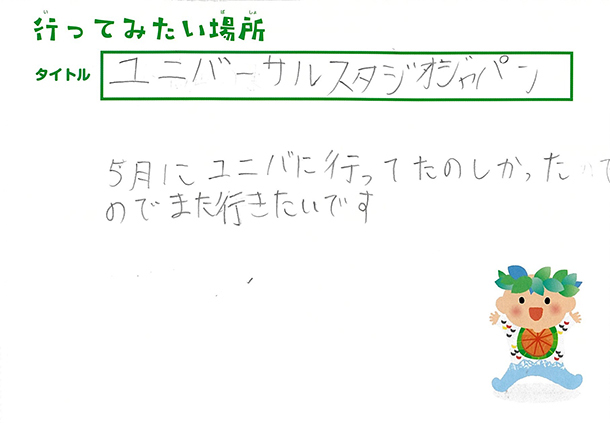 行ってみたい場所
タイトル ユニバーサルスタジオジャパン
5月にユニバに行ってたのしかった
のでまた行きたいです